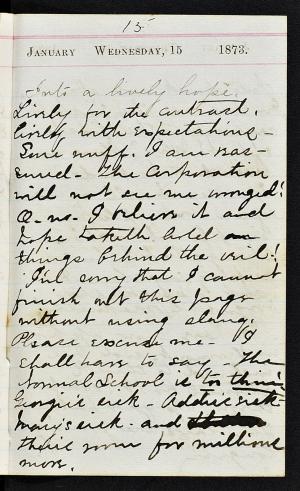 15
JANUARY WEDNESDAY, 15 1873.
Into a lively hope.
Lively for the contrast.
lively with expectations -
Sure nuff. I am reas-
sured - The Corporation
will not see me wronged!
O. no. I believe it and
hope taketh hold on
things behind the veil!
I'm sorry that I cannot
finish out this page
without using slang.
Please excuse me - I
shall have to say - The
Normal School is too thin!
Georgie sick - Addie sick -
Mary sick - and
their room for millions
more.